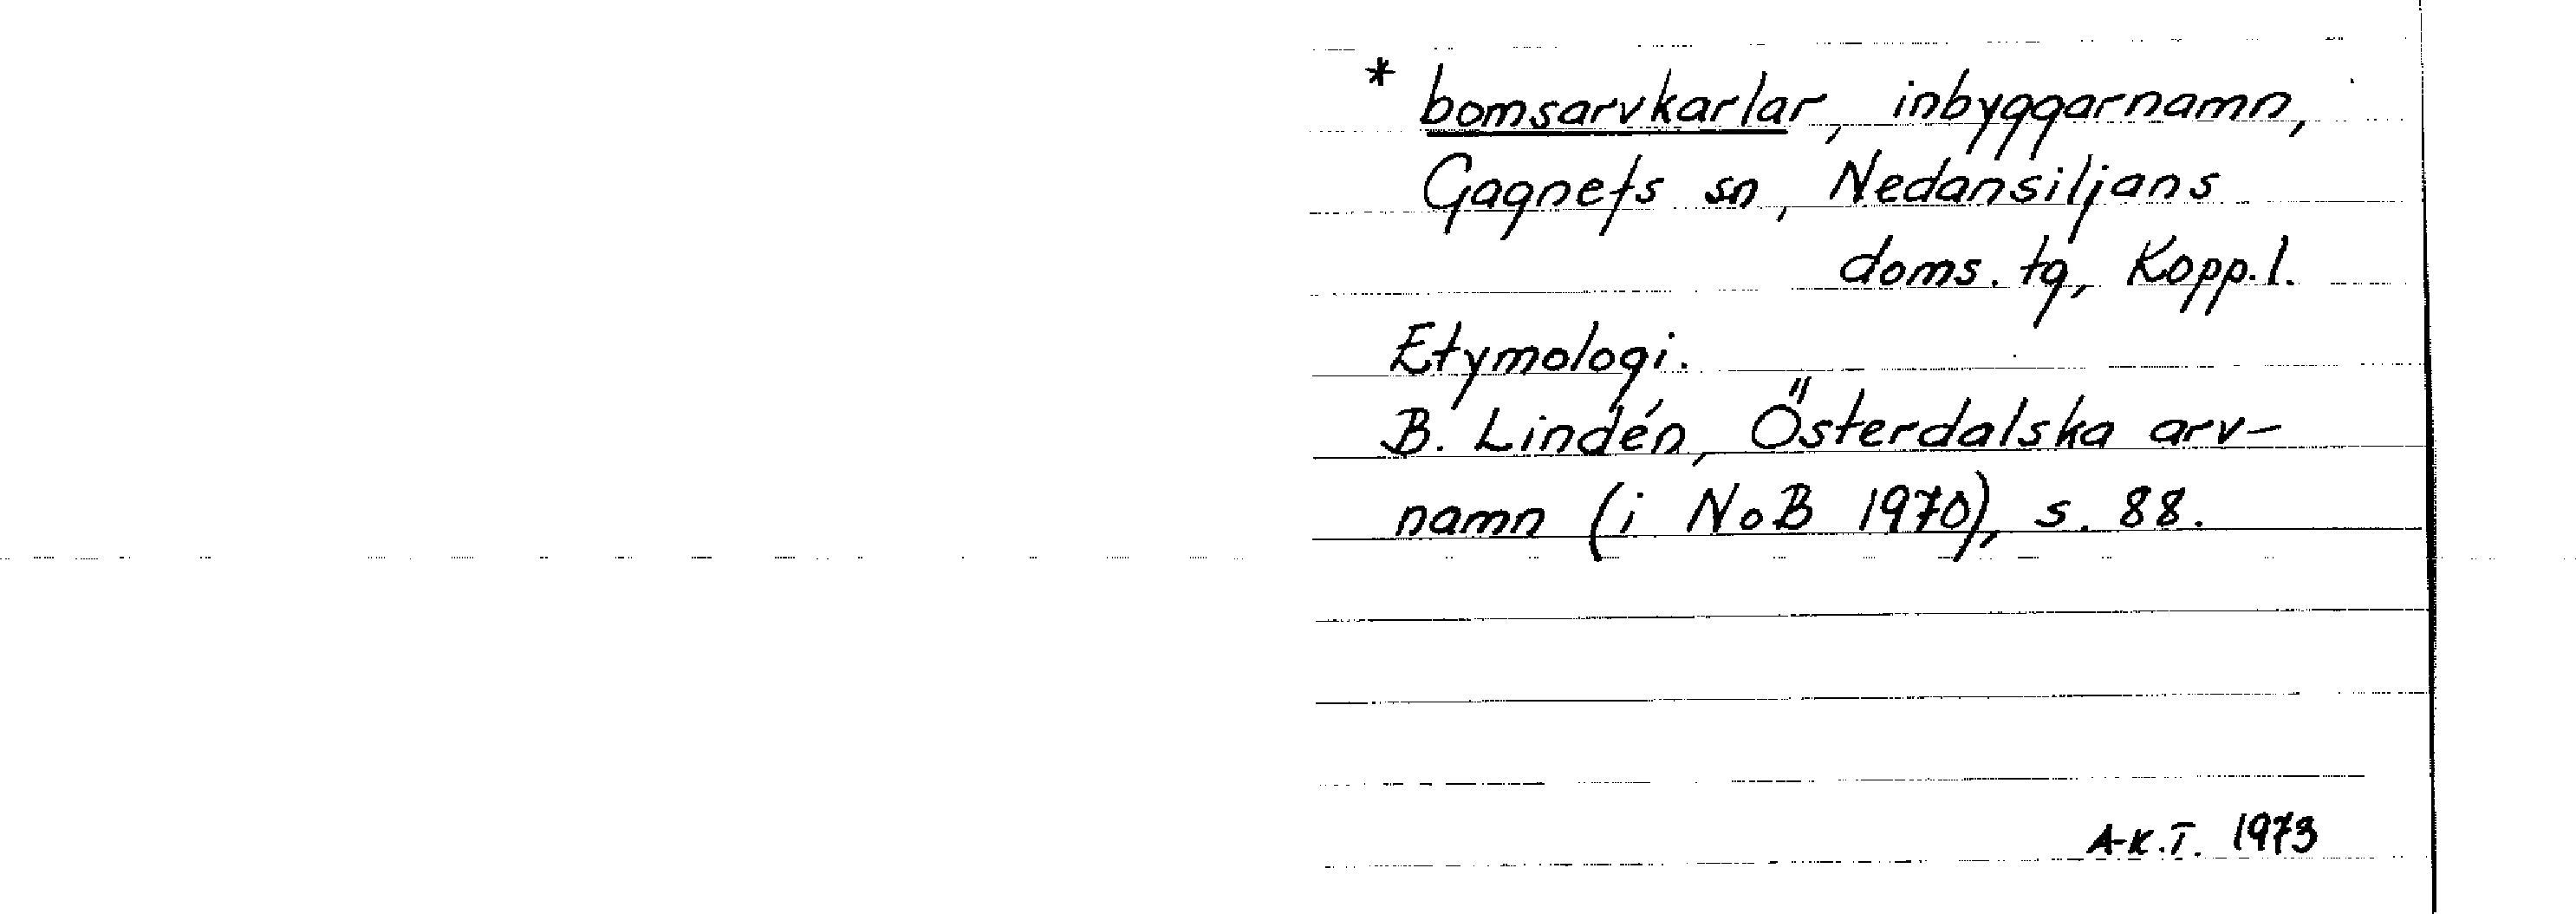 * bomsarvkarlar, inbyggarnamn,
Gagnefs sn, Nedansiljans
doms. tg, Kopp.l.
Etymologi.
B. Lindén, Österdalska arv-
namn (i NoB 1970), s. 88.
A-K.T. 1973